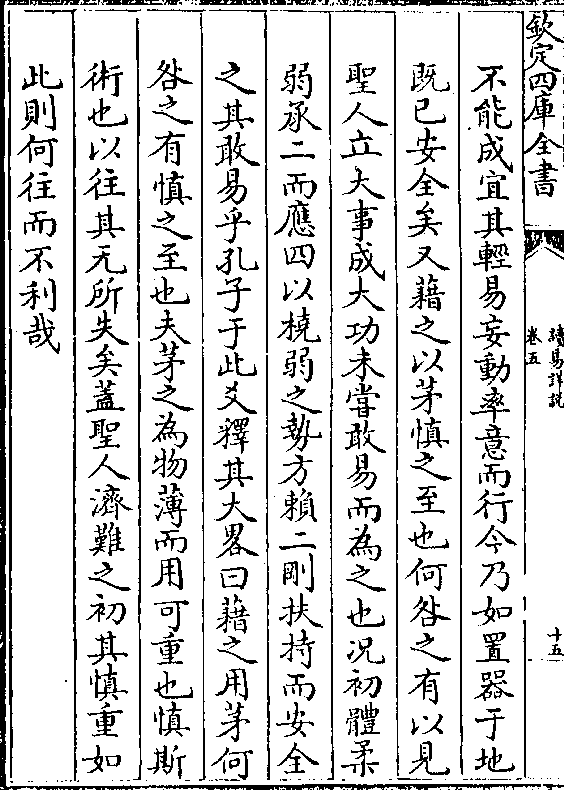 欽定四庫全書
讀易詳說
卷五
十五
不能成宜其輕易妄動率意而行今乃如置器于地
既已安全矣又藉之以茅慎之至也何咎之有以見
聖人立大事成大功未嘗敢易而為之也況初體柔
弱承二而應四以橈弱之勢方賴二剛扶持而安全
之其敢易乎孔子于此爻釋其大畧曰藉之用茅何
咎之有慎之至也夫茅之為物薄而用可重也慎斯
術也以往其无所失矣蓋聖人濟難之初其慎重如
此則何往而不利哉